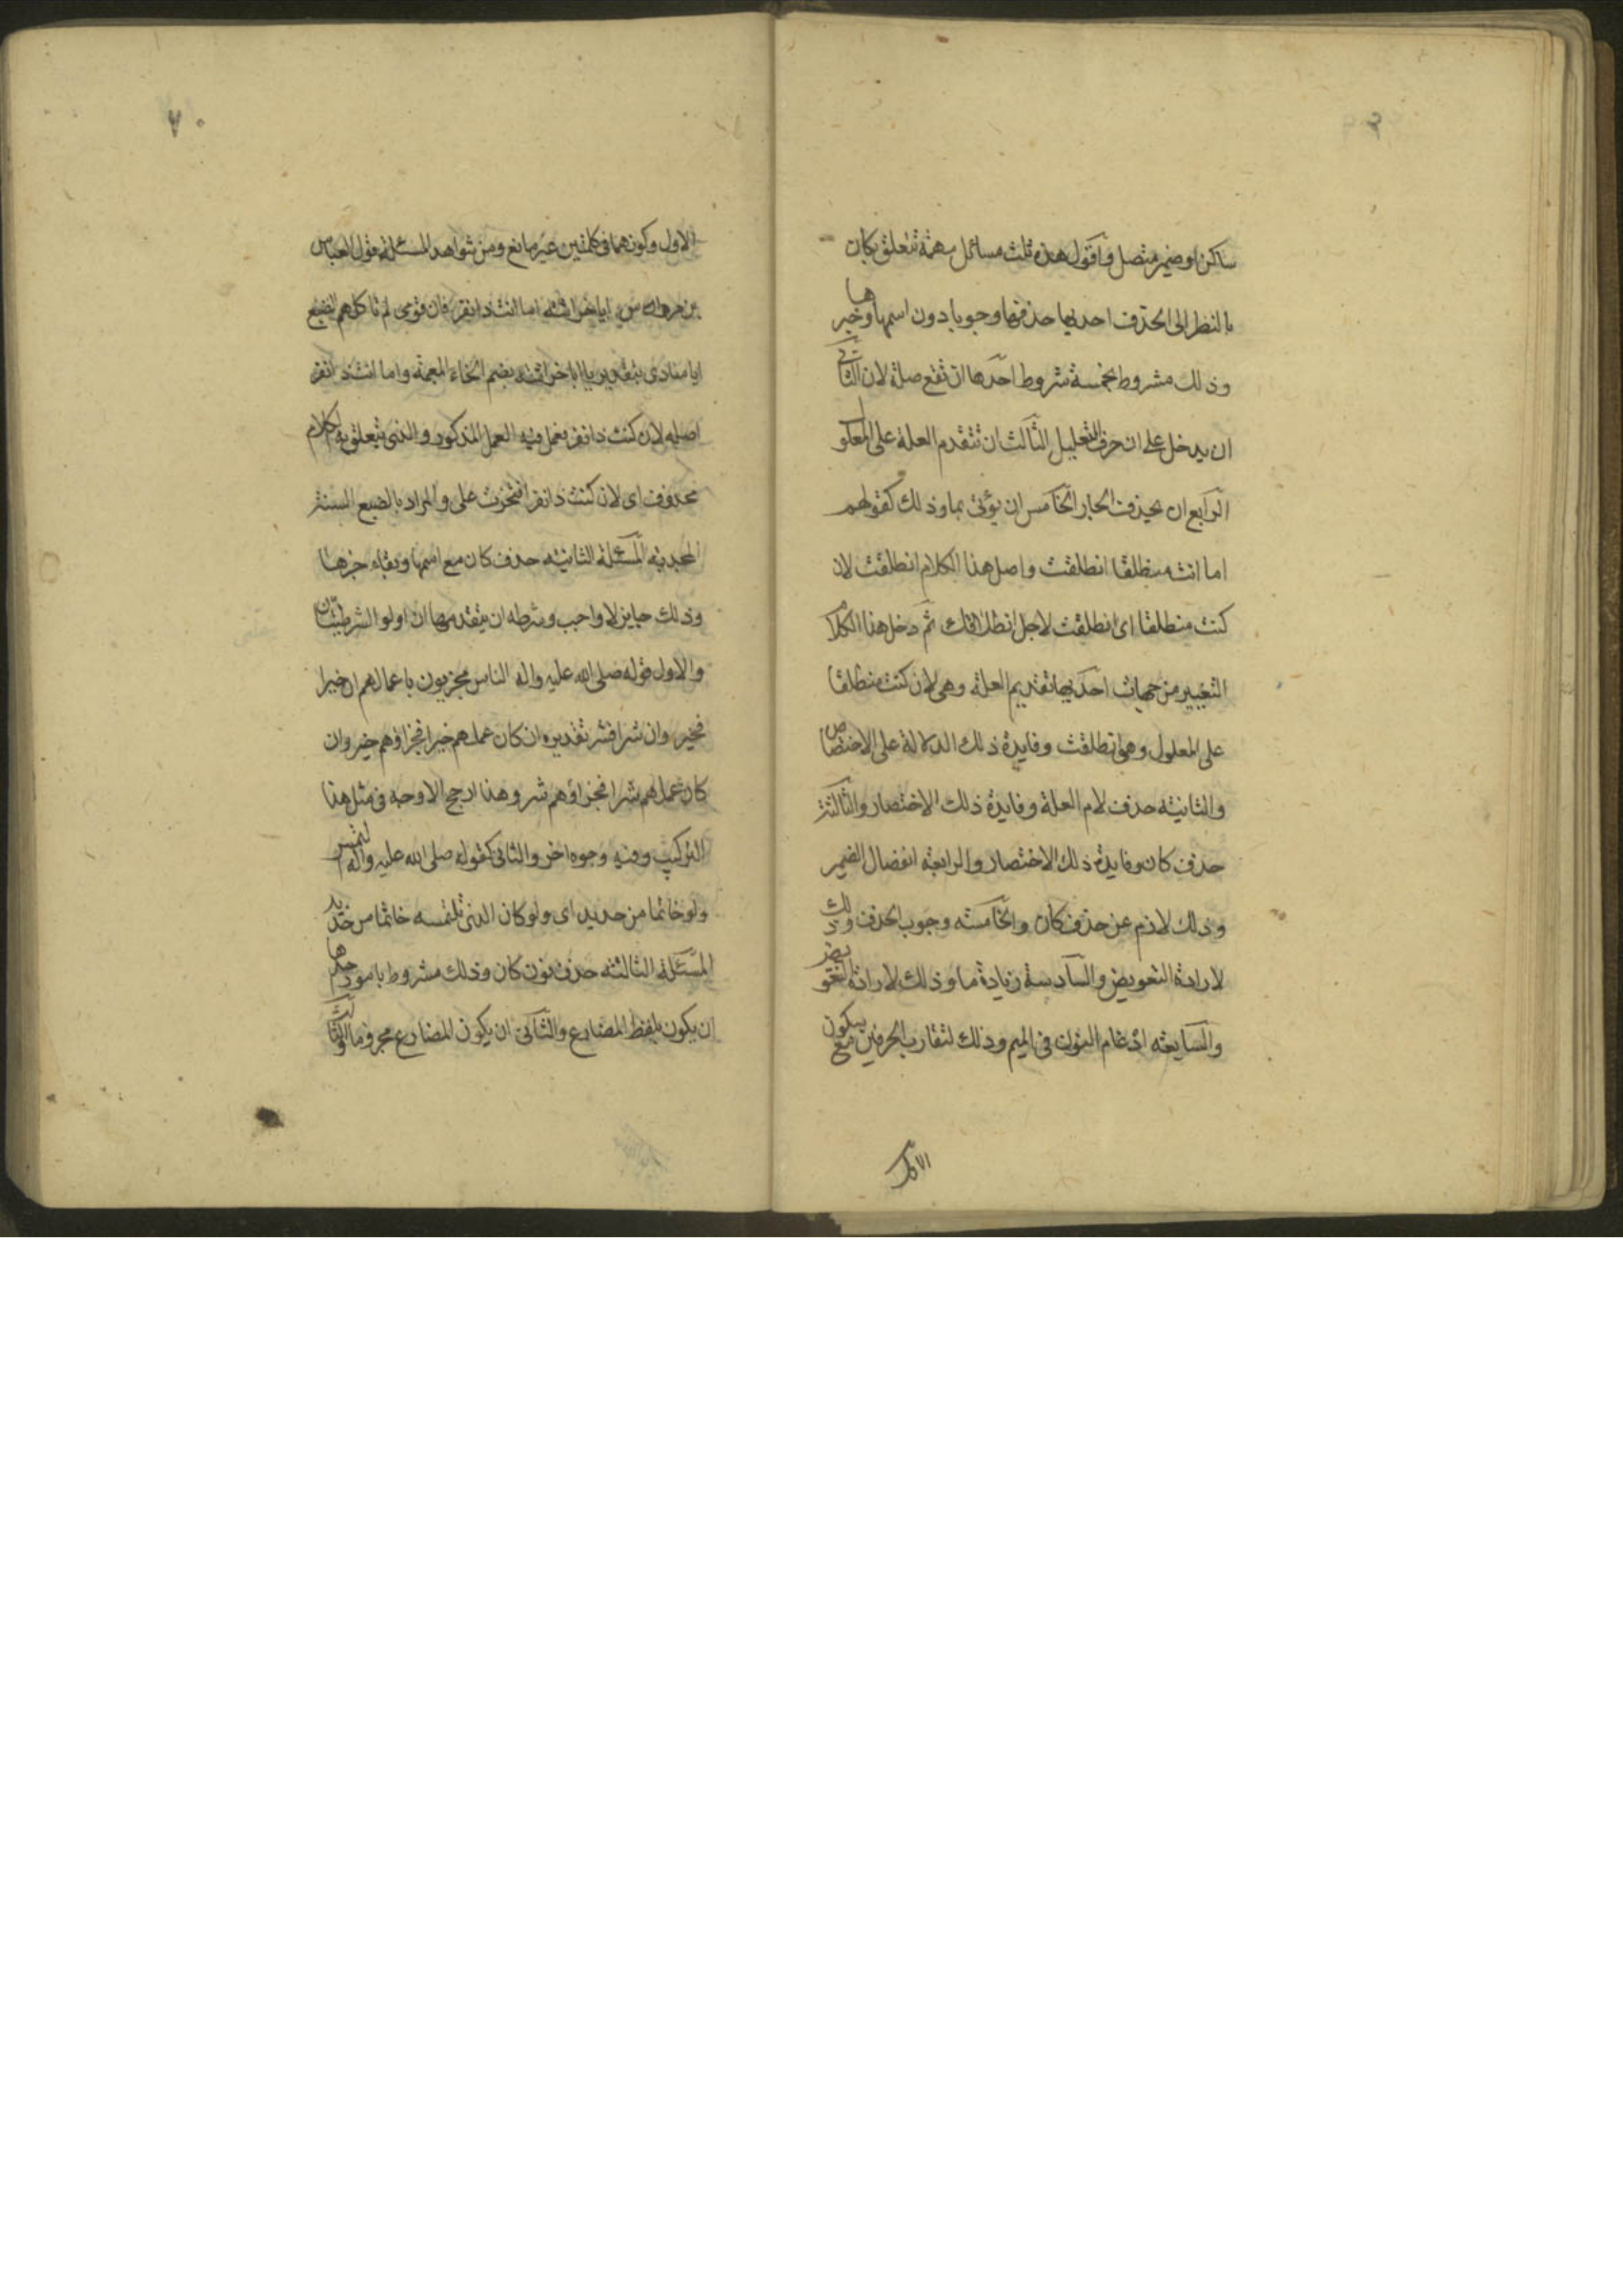 ساكن او ضمير متصل واقول هذه ثلث مسائل مهمة تتعلق بكان
بالنظر الى الحذف احديها حذفها وجوبا دون اسمها وخبرها
وذلك مشروط بخمسة شروط احدها ان تقع صلة لان الثانى
ان يدخل على ان حرف التعليل الثالث ان تتقدم العلة على المعلو
الرابع ان يحذف الجار الخامس ان يؤتى بما وذلك كقولهم
اما انت منطلقا انطلقت واصل هذا الكلام انطلقت لان
كنت منطلقا اى انطلقت لاجل انطلاقك ثم دخل هذا الكلام
التغيير من جهات احديها تقديم العلة وهى لان كنت منطلقا
على المعلول وهو انطلقت وفايدة ذلك الدلالة على الاختصاص
والثانية حذف لام العلة وفايدة ذلك الاختصار والثالثة
حذف كان وفايدة ذلك الاختصار والرابعة انفصال الضمير
وذلك لازم عن حذف كان والخامسة وجوب الحذف وذلك
لارادة التعويض والسادسة زيادة ما وذلك لارادة التعويض
والسابعة ادغام النون فى الميم وذلك لتقارب الحرفين مع سكون
الاول
٧٠
الاول وكونهما فى كلمتين غير مانع ومن شواهد المسئلة قول العباس
بن مرداس ابا خراشة اما انت ذا نفر فان قومى لم تاكلهم الضبع
ابا منادى بتقدير يا ابا خراشة بضم الخاء المعجمة واما انت ذا نفر
اصله لان كنت ذا نفر فعمل فيه العمل المذكور والذى يتعلق به الكلام
محذوف اى لان كنت ذا نفر افتخرت على والمراد بالضبع السنة
المجدبة المسئلة الثانية حذف كان مع اسمها وبقاء خبرها
وذلك جايز لا واجب وشرطه ان يتقدمها ان او لو الشرطيتان
والاول قوله صلى الله عليه واله الناس مجزيون باعمالهم ان خيرا
فخير وان شرا فشر تقديره ان كان عملهم خيرا فجزاؤهم خير وان
كان عملهم شرا فجزاؤهم شر وهذا ارجح الاوجه فى مثل هذا
التركيب وفيه وجوه اخر والثانى كقوله صلى الله عليه واله التمس
ولو خاتما من حديد اى ولو كان الذى تلتمسه خاتما من حديد
المسئلة الثالثة حذف نون كان وذلك مشروط بامور احدها
ان يكون بلفظ المضارع والثانى ان يكون المضارع مجزوما والثالث